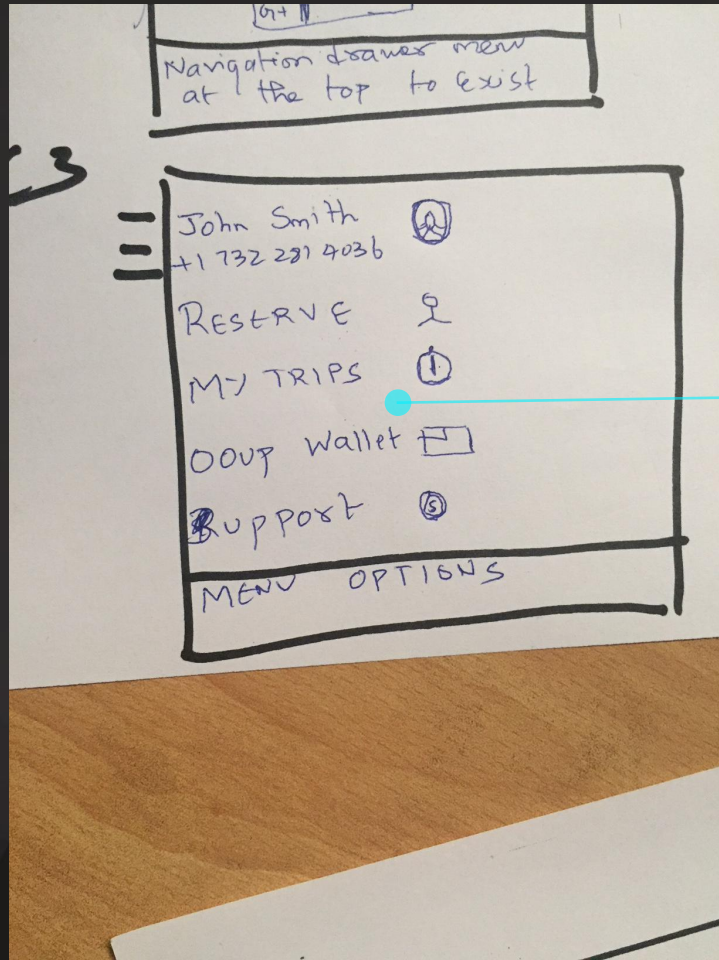 G+
Navigation drawer menu
at the top to exist
3
John Smith
+1 732 281 4036
RESERVE
MY TRIPS
OOUP Wallet
Support
S
MENU OPTIONS